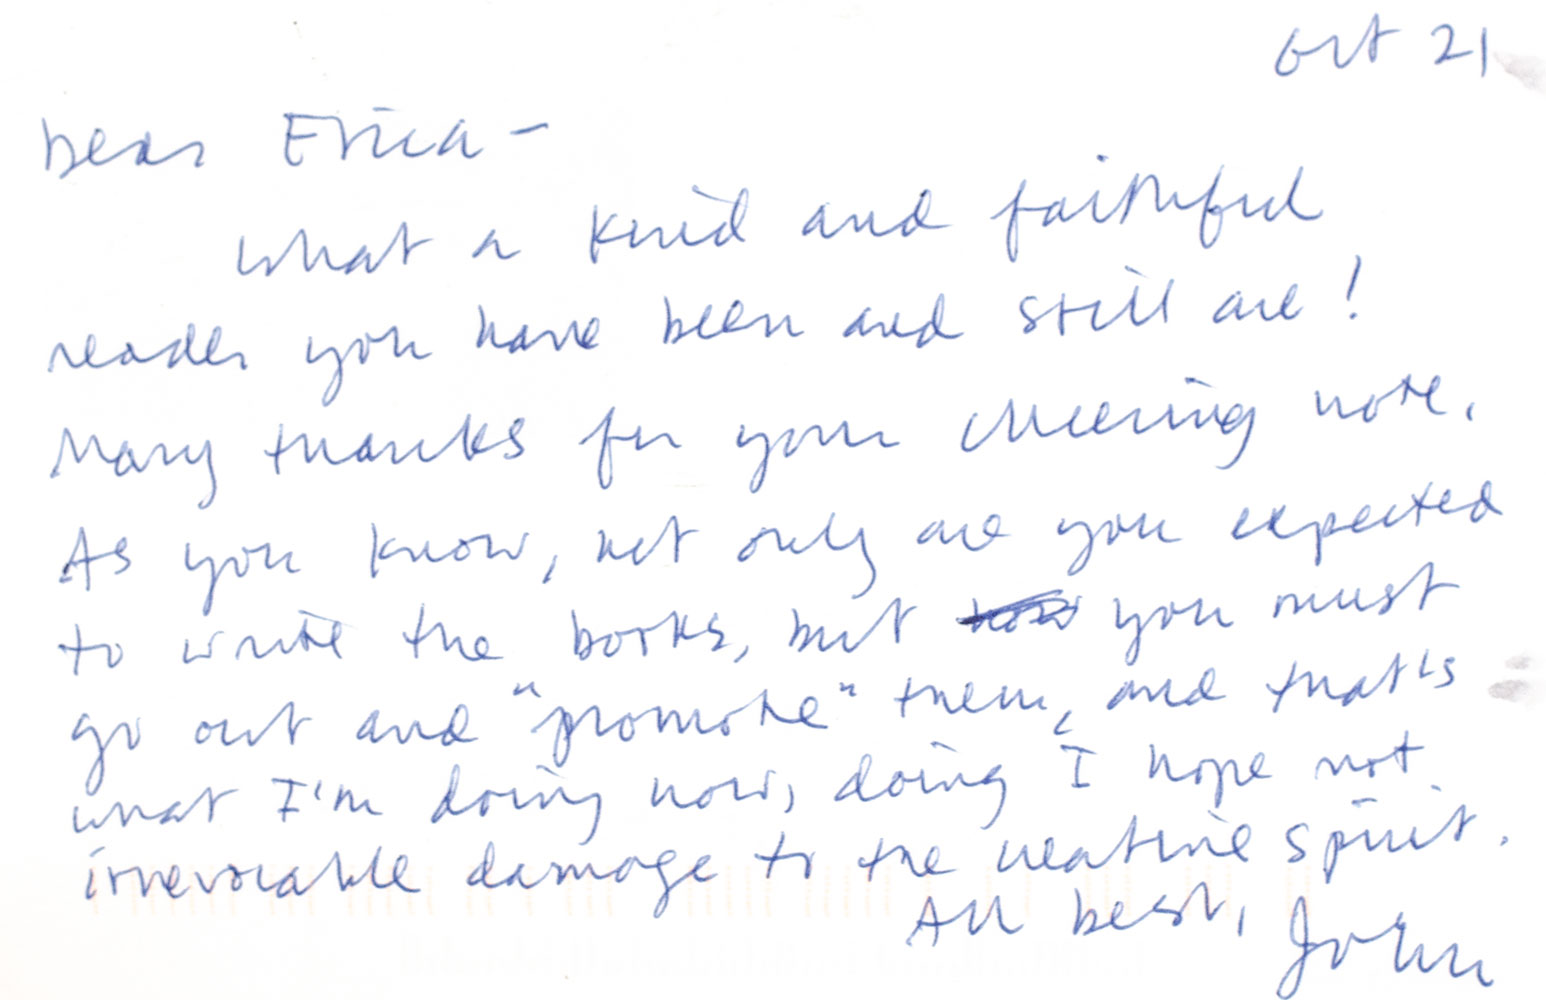 Oct 21
Dear Erica –
What a kind and faithful
reader you have been and still are!
Many thanks for your cheering note.
As you know, not only are you expected
to write the books, but now you must
go out and "promote" them, and that's
what I'm doing now, doing I hope not
irrevocable damage to the creative spirit.
All best,
John